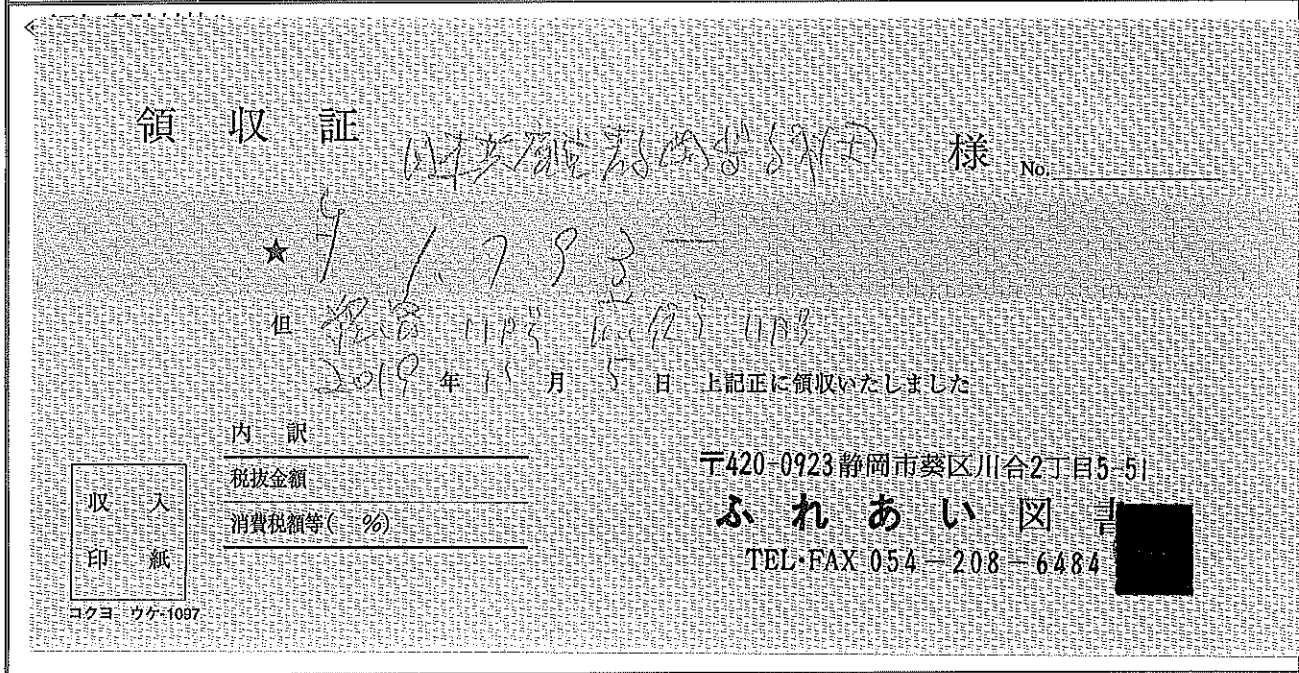 領収証 日本共産党 様 No.
★ ¥1,793－
但
2019年 月5日 上記正に領収いたしました
内訳
税抜金額
消費税額等( %)
収入
印紙
コクヨ ウケ-1097
〒420-0923静岡市葵区川合2丁目5-51
ふれあい図書
TEL・FAX 054－208－6484